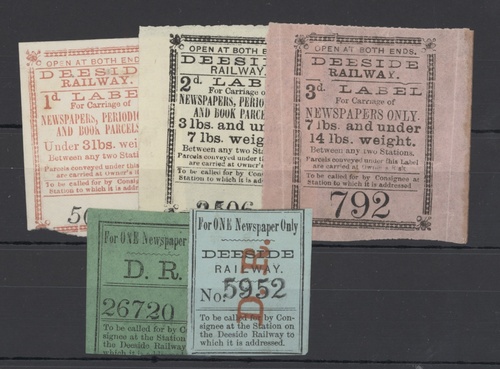 OPEN AT BOTH ENDS
DEESIDE
RAILWAY.
1d LABEL
For Carriage of
NEWSPAPERS, PERIODIC
AND BOOK PARCELS
Under 3lbs. weig
Between any two Stati
Parcels conveyed under this
are carried at Owner's
To be called for by Consign
Station to which it is add
OPEN AT BOTH ENDS
DEESIDE
RAILWAY.
2d. LABEL
For Carriage o
NEWSPAPERS, PERIO
AND BOOK PARCE
3lbs. and un
7lbs. weig
Between any two Stati
Parcels conveyed under thi
are carried at Owner
To be called for by Consi
Station to which it is
2506
OPEN AT BOTH ENDS.
DEESIDE
RAILWAY.
3d. LABEL
For Carriage of
NEWSPAPERS ONLY.
7lbs. and under
14lbs. weight.
Between any two Stations.
Parcels conveyed under this Label
are carried at Owner's
To be called for by Consignee at
Station to which it is addressed
792
For ONE Newspaper
D. R.
26720
To be called for by Co
signee at the Station
the Deeside Railway
which it is
For ONE Newspaper Only
DEESIDE
RAILWAY.
No. 5952
D. R.
To be called for by Con-
signee at the Station on
the Deeside Railway to
which it is addressed.